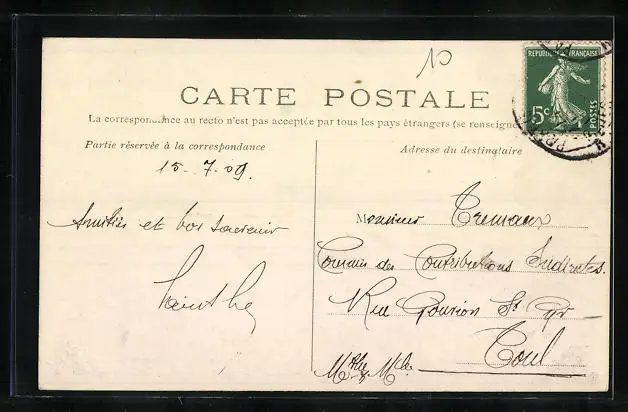 10
RÉPUBLIQUE FRANÇAISE
5c
POSTES
CARTE POSTALE
La correspondance au recto n'est pas acceptée par tous les pays étrangers (se renseigne
Partie réservée à la correspondance
Adresse du destinataire
15-7-09.
Amitiés et bon souvenir
Monsieur Cremaux
Commis des Contributions Indirectes.
Rue Gouvion St Cyr
Toul
Mthe & Mlle